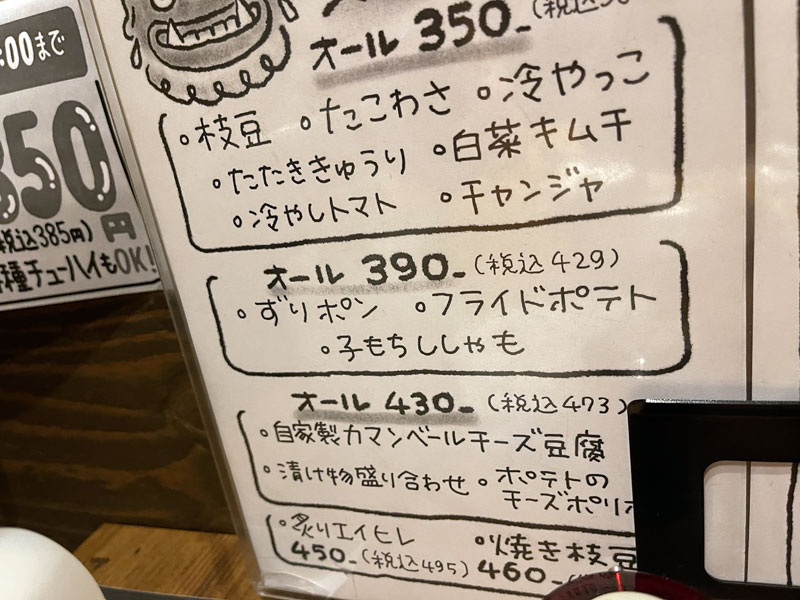 :00まで
350
(税込385円) 円
各種チューハイもOK!
オール 350-
。枝豆 。たこわさ 。冷やっこ
。たたききゅうり 。白菜キムチ
。冷やしトマト 。チャンジャ
オール 390- (税込429)
。ずりポン 。フライドポテト
。子もちししゃも
オール 430- (税込473)
。自家製カマンベールチーズ豆腐
。漬け物盛り合わせ 。ポテトの
チーズポリ
。炙りエイヒレ 。焼き枝豆
450-(税込495) 460-